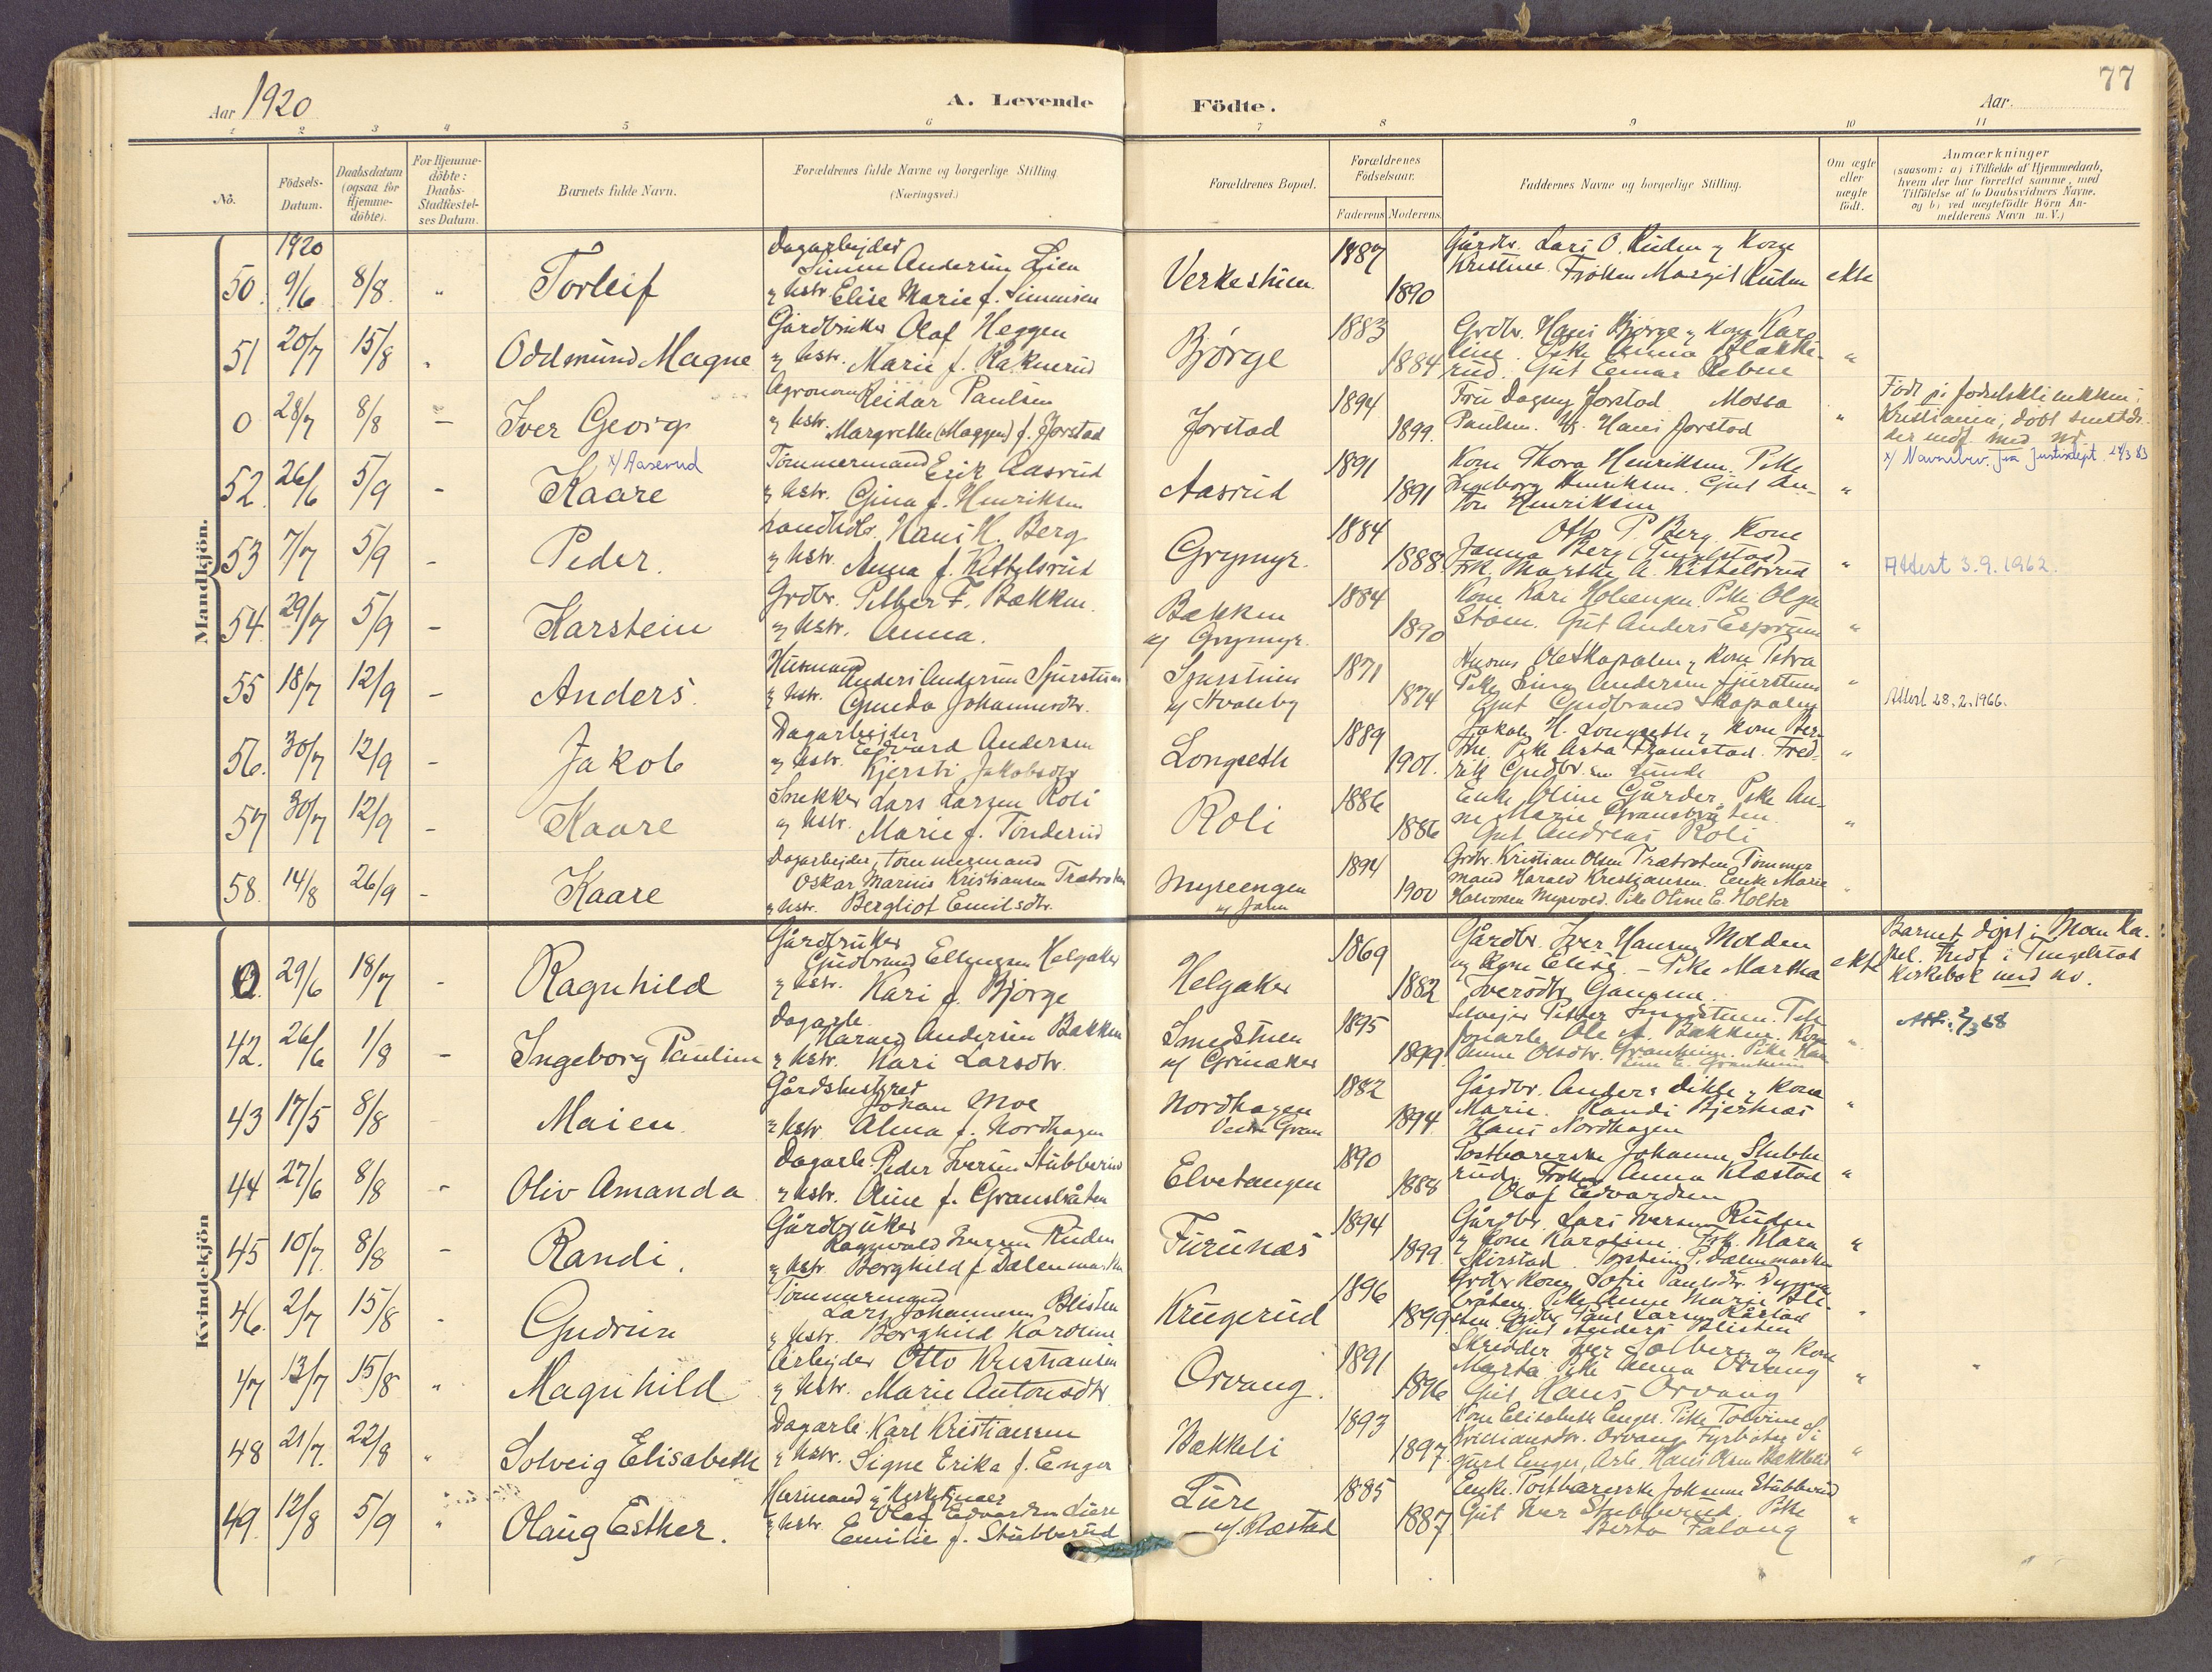 77
Aar 1920
A. Levende Födte.
Aar
1 2 3 4 5 6 7 8 9 10 11
No.
Födsels-Datum.
Daabsdatum (ogsaa for Hjemme-döbte).
For Hjemme-döbte: Daabs-Stadfæstel-ses Datum.
Barnets fulde Navn.
Forældrenes fulde Navne og borgerlige Stilling
(Næringsvei.)
Forældrenes Bopæl.
Forældrenes Födselsaar.
Faderens Moderens
Faddernes Navne og borgerlige Stilling.
Om ægte eller uægte födt.
Anmærkninger
(saasom: a) i Tilfælde af Hjemmedaab,
hvem der har forrettet samme, med
Tilföielse af to Daabsvidners Navne,
og b) ved uægtefödte Börn An-
melderens Navn m. V.)
Mandkjön.
1920
50. 9/6 8/8 " Torleif
Dagarbejder
Simen Andersen Lien
og hstr. Elise Marie f. Simensen
Verkestuen 1887 1890
Gårdbr. Lars O. Ruden og Kone
Kristine. Frøken Margit Ruden ekte
51 20/7 15/8 " Oddmund Magne
Gårdbruker Olaf Heggen
og hstr. Marie f. Raknerud
Bjørge 1883 1884
Grdbr. Hans Bjørge og Kone Karo
line. Pike Anna Blakke-
rud. Gut Einar "
0 28/7 8/8 - Iver Georg
Agronom Reidar Paulsen
og hstr. Margrethe (Maggen) f. Jorstad
Jorstad 1894 1899.
Fru Dagny Jorstad Mossa
Paulsen. Hans Jorstad "
Født på fødselsklinikken i
Kristiania; døbt
med nr.
52. 26/6 5/9 - Kaare
x/ Aaserud
Tømmermand Erik Aasrud
og hstr. Gina f. Henriksen
Aasrud 1891 1891
Kone Thora Henriksen. Pike
Ingeborg Henriksen. Gut An-
ton Henriksen "
x/ Navnebev. fra Justisdept. 24/3 83
53 7/7 5/9 - Peder.
Landhdlr. Hans H. Berg
og hstr. Anna f. Kittelsrud
Grymyr. 1884 1888.
Otto P. Berg. Kone
Janna Berg (Tingelstad)
Frk. Marthe A. Kittelsrud "
Attest 3.9.1962.
54. 29/7 5/9 - Karstein
Grdbr. Petter F. Bækken.
og hstr. Anna.
Bækken
u/ Grymyr. 1884 1890
Kone Kari Holsengen. Pike Olga
Strøm. Gut Anders "
55 18/7 12/9 - Anders.
Husmand
Anders Andersen Sjusstuen
og hstr. Gunda Johannesdtr.
Sjusstuen
u/ Hvaleby 1871 1874
Husms. Ole Skapalen og Kone Petra
Pike Lina Andersen Sjusstuen
Gut Gudbrand Skapalen "
Attest 28.2.1966.
56. 30/7 12/9 - Jakob
Dagarbejder
Edvard Andersen
og hstr. Kjersti Jakobsdtr
Longseth 1889 1901.
Jakob H. Longseth og Kone Ber-
the. Pike Asta Framstad. Fred-
rik Gudbr.sen Lunde "
57 30/7 12/9 - Kaare
Snekker Lars Larsen Roli
og hstr. Marie f. Tønderud
Roli 1886 1886
Enke Oline Gårder. Pike An-
ne Marie Gransbråten.
Gut Andreas Roli "
58. 14/8 26/9 - Kaare
Dagarbejder, tømmermand
Oskar Marius Kristiansen Trætraten
og hstr. Bergliot Emilsdtr.
Myreengen
u/ Jaren 1894 1900
Grdbr. Kristian Olsen Trætraten. Tømmer
mand Harald Kristiansen. Enke Marie
Halvorsen Myrvold. Pike Oline E. Holter "
Kvindekjön
0. 29/6 18/7 - Ragnhild
Gårdbruker
Gudbrand Ellingsen Helgaker
og hstr. Kari f. Bjørge
Helgaker 1869 1882
Gårdbr. Iver Hansen Molden
og Kone Elise. - Pike Martha
Iversdtr. ekte
Barnet døpt i Moen Ka-
pel. Indf. i Tingelstad
kirkebok med no.
42. 26/6 1/8 - Ingeborg Pauline
Dagarb.
Harald Andersen Bakken
og hstr. Kari Larsdtr.
Smedstuen
u/ Grinaker 1895 1899
Petter Smedstuen.
Ole A. Bakken. Kone
Anne Olsdtr. Granheim. Pike
Granheim "
Att. 2/3 68
43 17/5 8/8 - Maien.
Gårdsbestyrer
Johan Moe
og hstr. Alma f. Nordhagen
Nordhagen
Vestre Gran 1882 1894
Gårdbr. Anders Dihle og Kone
Marie. Randi Bjertnæs
Hans Nordhagen "
44 27/6 8/8 - Oliv Amanda
Dagarb. Peder Iversen Stubberud
og hstr. Oline f. Gransbråten
Elvetangen 1890 1888
Postbærerske Johanne Stubbe
rud. Frøken Anna Kløstad
Olaf Edvardsen "
45 10/7. 8/8 - Randi.
Gårdbruker
Ragnvald Iversen Ruden
og hstr. Borghild f. Dalenmarken
Furunæs 1894 1899.
Gårdbr. Lars Iversen Ruden
og Kone Karoline. Frk. Mara
Skirstad. Torstein P. Dalenmarken "
46. 2/7 15/8 - Gudrun
Tømmermand
Lars Johannesen Blisten
og hstr. Borghild Karoline
Krugerud 1896 1899
Grdbr. Kone Sofie Paulsdtr. Dynna
bråten. Pike Anne Marie Bli-
sten. Grdbr. Paul Larsen Råstad
Gut Anders Blisten "
47 13/7 15/8 " Magnhild
Arbejder Otto Kristiansen
og hstr. Marie Antonsdtr
Orvang. 1891 1896
Skredder Iver Solberg og Kone
Marta. Pike Anna Orvang
Gut Hans Orvang "
48 21/7. 22/8 " Solveig Elisabeth
Dagarb. Karl Kristiansen
og hstr. Signe Erika f. Enger
Bækkeli 1893 1897.
Kone Elisabeth Enger. Pike Tolvine
Kristiansdtr. Orvang. Fyrbøter Si
gurd Enger, Arb. Hans Olsen Bækkelid "
49. 12/8 5/9 " Olaug Esther.
Husmand og kirketjener
Olaf Edvardsen Lure
og hstr. Emilie f. Stubberud
Lure
u/ Røstad 1885 1887
Enke. Postbærerske Johanne Stubberud
Gut Iver Stubberud. Pike
Berta Falang "